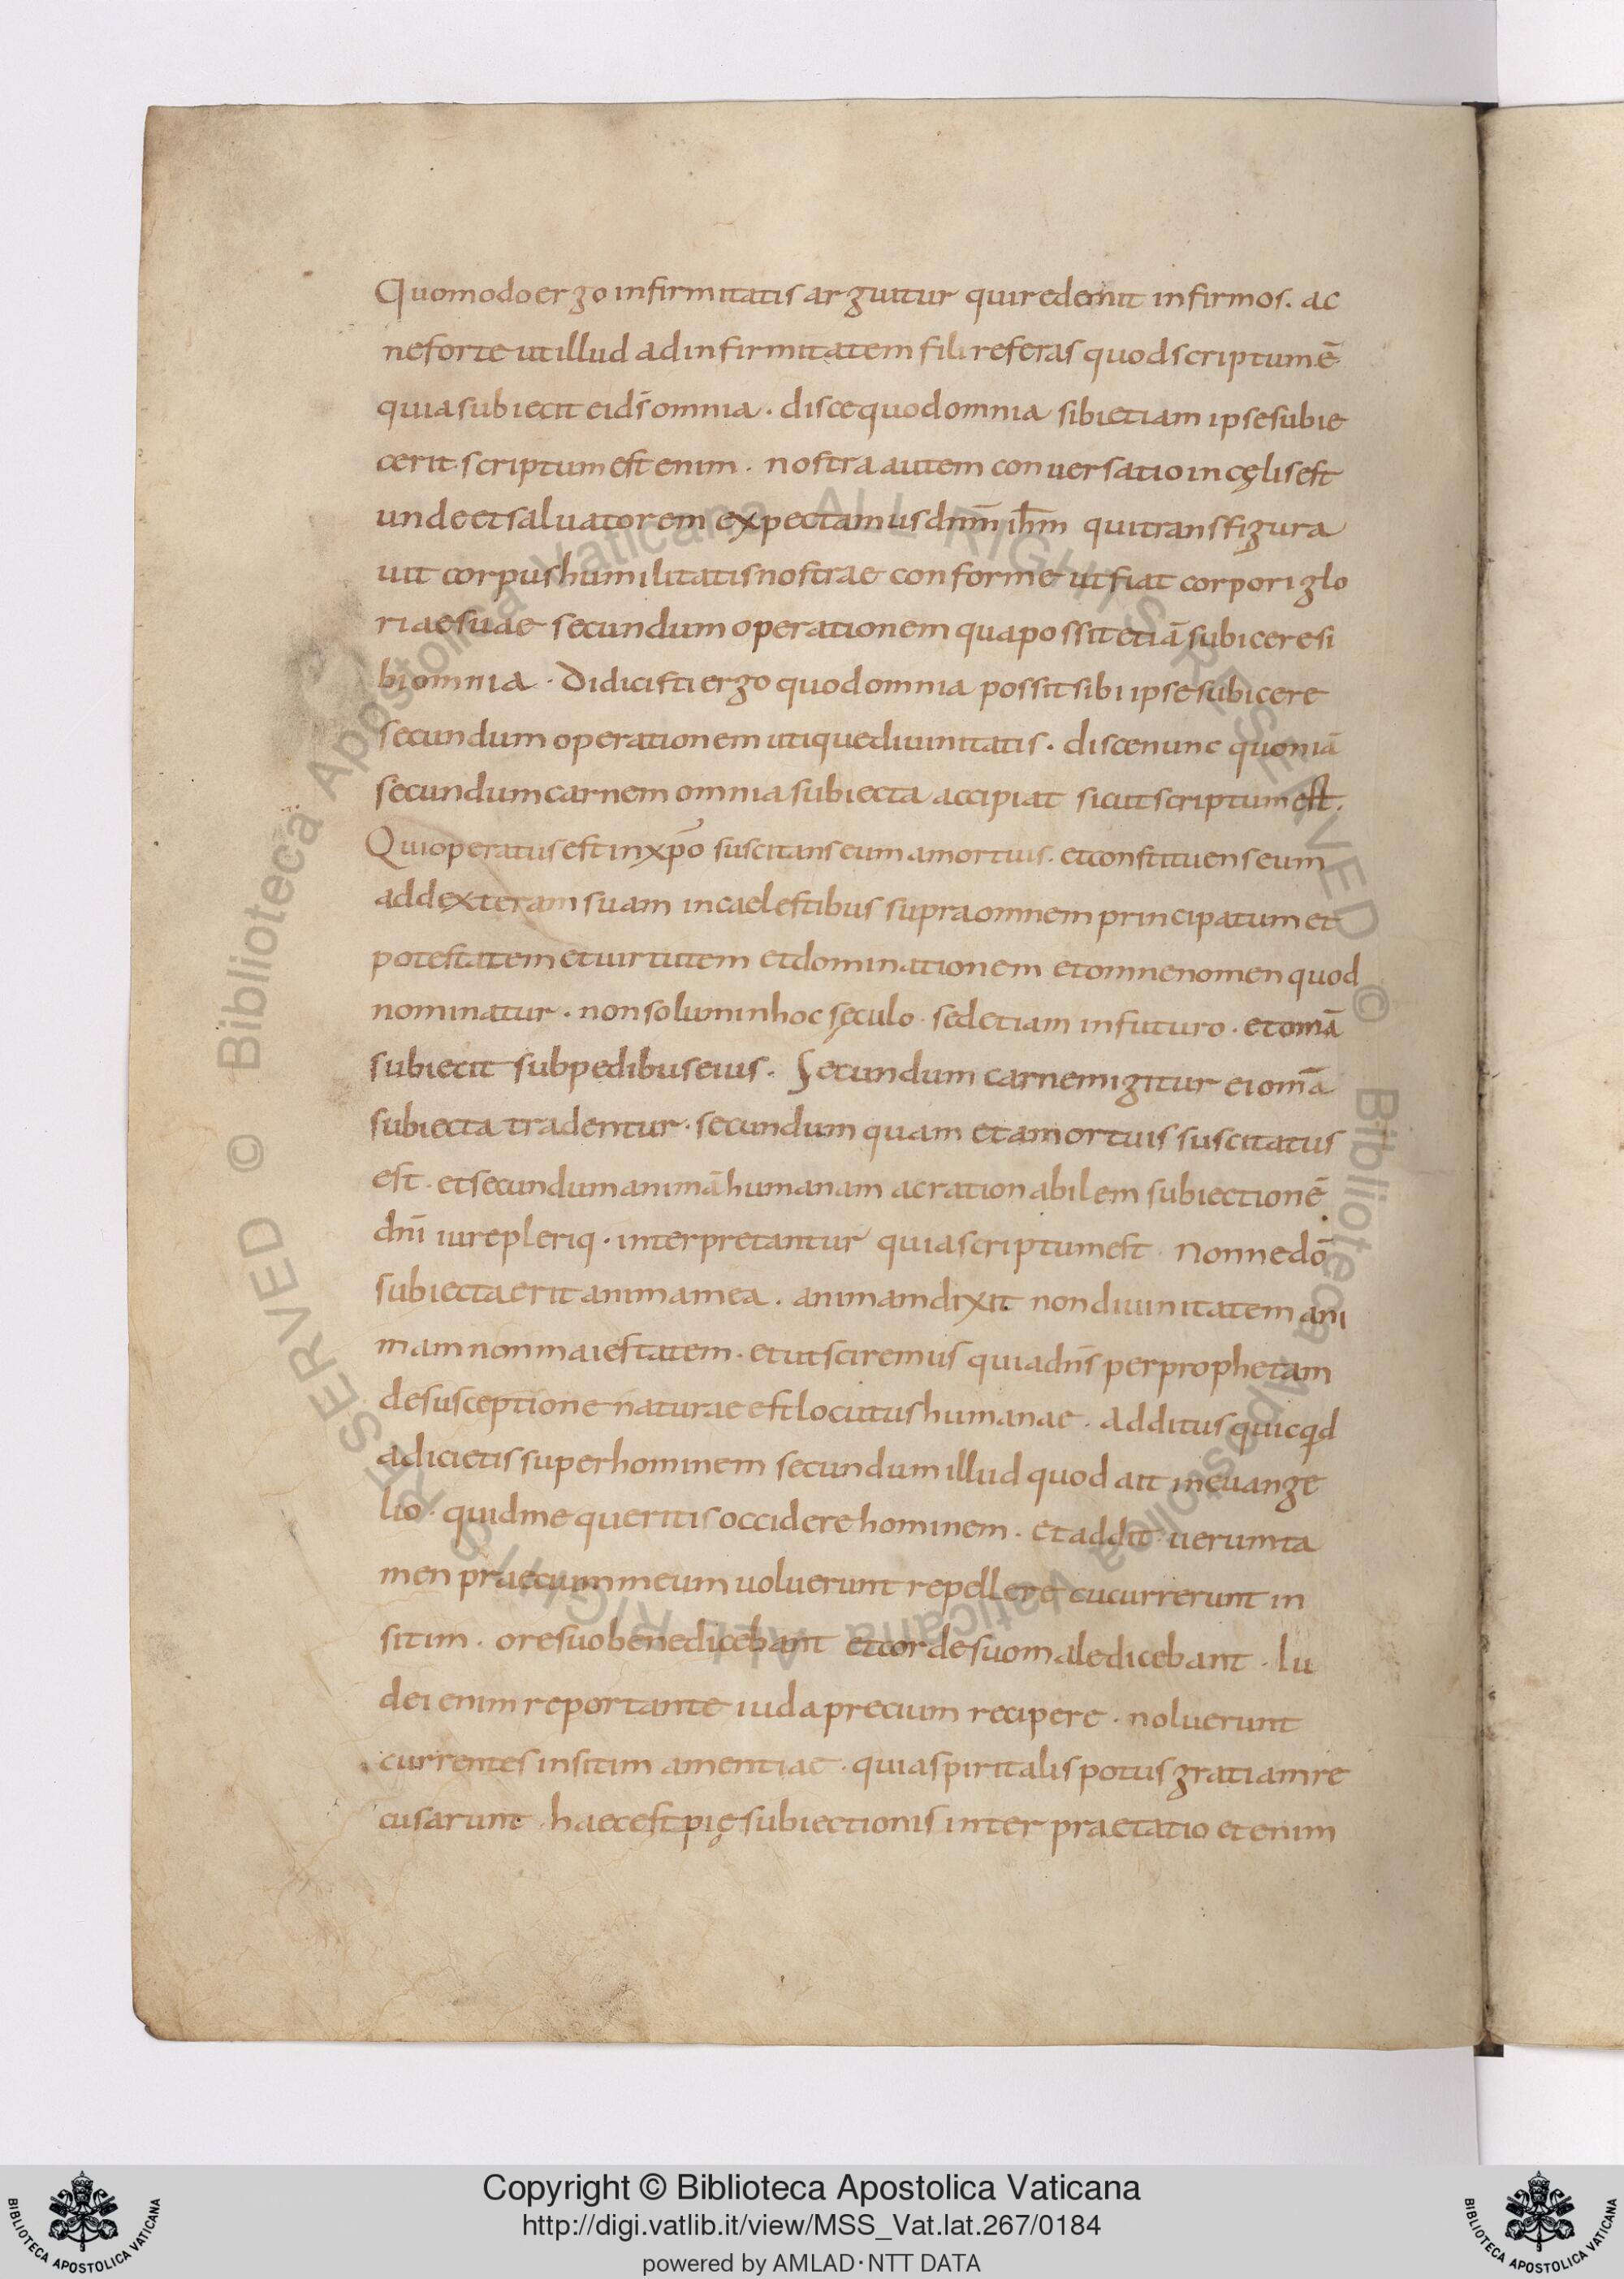 Quomodo ergo infirmitatis arguitur qui redemit infirmos. ac
ne forte ut illud ad infirmitatem fili referas quod scriptum ē
quia subiecit ei ds̄ omnia · disce quod omnia sibi etiam ipse subie
cerit · scriptum est enim · nostra autem conuersatio in cęlis est
unde et saluatorem expectamus dnm̄ ih̄m qui transfigura
uit corpus humilitatis nostrae conforme ut fiat corpori glo
riae suae secundum operationem qua possit etiā subicere si
bi omnia · Didicisti ergo quod omnia possit sibi ipse subicere
secundum operationem utique diuinitatis · disce nunc quoniā
secundum carnem omnia subiecta accipiat sicut scriptum est.
Qui operatus est in xp̄o suscitans eum a mortuis. et constituens eum
ad dexteram suam in caelestibus supra omnem principatum et
potestatem et uirtutem et dominationem et omne nomen quod
nominatur · non solum in hoc sęculo · sed etiam in futuro · et omā
subiecit sub pedibus eius. Secundum carnem igitur ei omā
subiecta tradentur · secundum quam et a mortuis suscitatus
est · et secundum animā humanam ac rationabilem subiectionē
dnī iure pleriq · interpretantur quia scriptum est · Nonne dō
subiecta erit anima mea. animam dixit non diuinitatem ani
mam non maiestatem · et ut sciremus quia dns̄ per prophetam
de susceptione naturae est locutus humanae · additus quicqd
adicietis super hominem secundum illud quod ait in euange
lio · quid me queritis occidere hominem · et addit · uerumta
men praecium meum uoluerunt repellere cucurrerunt in
sitim · ore suo benedicebant et corde suo maledicebant · Iu
dei enim reportante iuda precium recipere · noluerunt
currentes in sitim amentiae · quia spiritalis potus gratiam re
cusarunt · haec est pię subiectionis interpraetatio et enim
© Biblioteca Apostolica Vaticana ALL RIGHTS RESERVED © Biblioteca Apostolica Vaticana ALL RIGHTS RESERVED
BIBLIOTECA APOSTOLICA VATICANA
Copyright © Biblioteca Apostolica Vaticana
http://digi.vatlib.it/view/MSS_Vat.lat.267/0184
powered by AMLAD·NTT DATA
BIBLIOTECA APOSTOLICA VATICANA